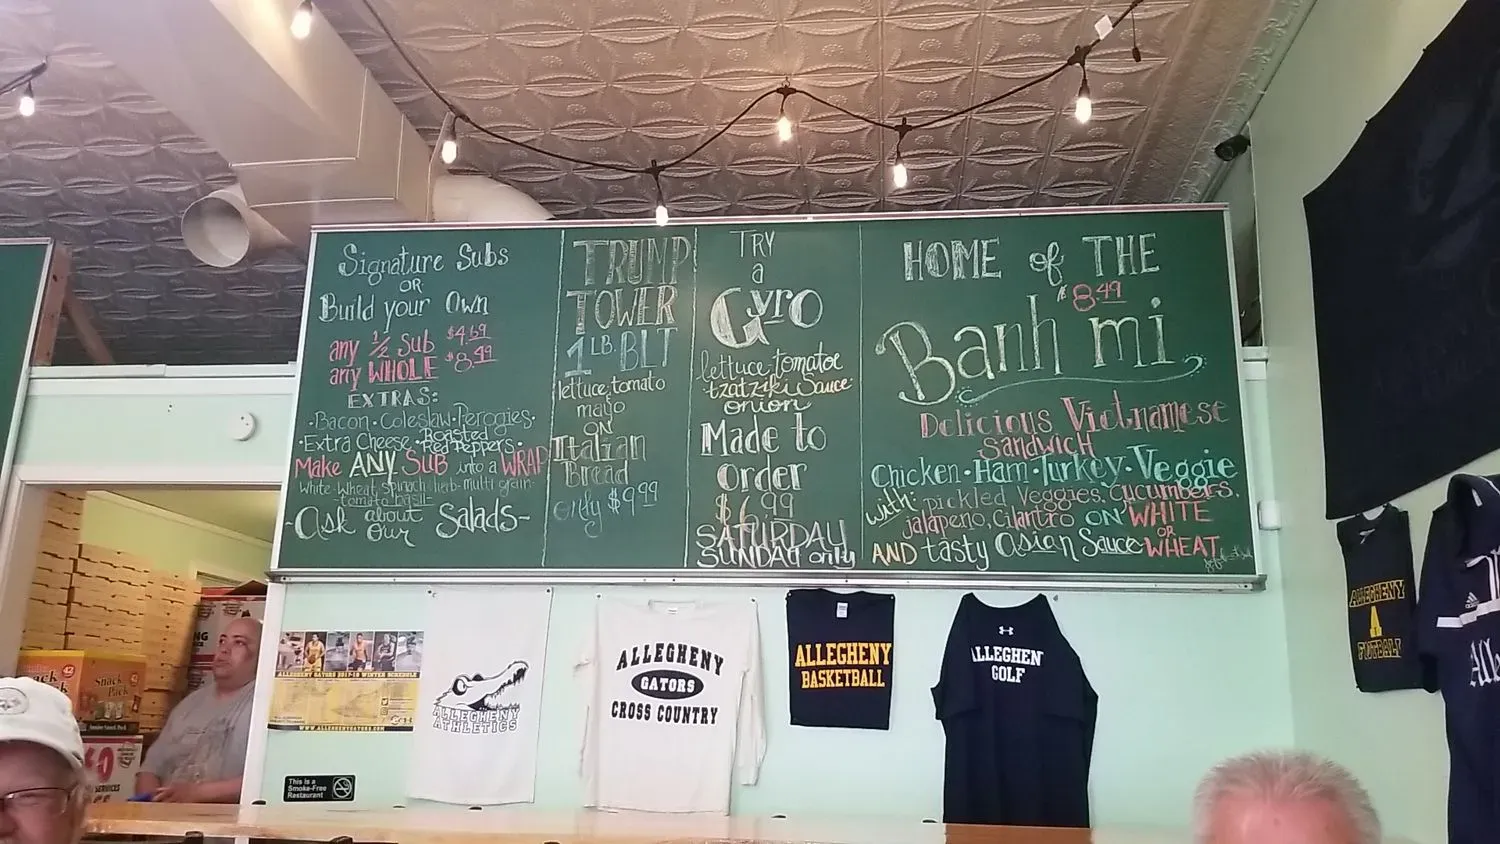 Signature Subs
OR
Build your Own
any ½ Sub $4.69
any WHOLE $8.49
EXTRAS:
·Bacon·Coleslaw·Perogies·
·Extra Cheese·Roasted Red Peppers·
Make ANY SUB into a WRAP
White·Wheat·Spinach·herb·multi grain·
tomato basil
-Ask about our Salads-
TRUMP
TOWER
1 LB. BLT
lettuce, tomato
mayo
ON
Italian
Bread
only $9.99
TRY
a
Gyro
lettuce·tomatoe
tzatziki Sauce
onion
Made to
Order
$6.99
SATURDAY
SUNDAY only
HOME of THE
$8.49
Banh mi
Delicious Vietnamese
SANDWICH
Chicken·Ham·Turkey·Veggie
with: pickled Veggies, Cucumbers,
jalapeno, Cilantro ON WHITE
OR
AND tasty Asian Sauce WHEAT
ALLEGHENY GATORS 2017-18 WINTER SCHEDULE
WWW.ALLEGHENYGATORS.COM
ALLEGHENY
ATHLETICS
ALLEGHENY
GATORS
CROSS COUNTRY
ALLEGHENY
BASKETBALL
ALLEGHEN
GOLF
ALLEGHENY
A
FOOTBALL
adidas
Alle
Snack
Pack
42
This is a
Smoke-Free
Restaurant